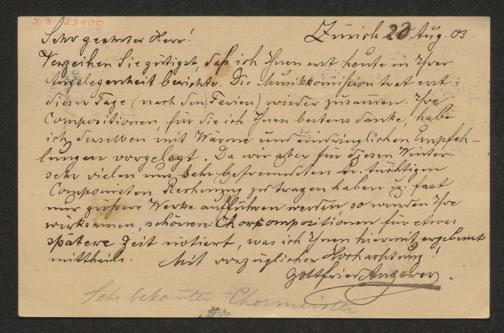 Sehr geehrter Herr! Zürich 20 Aug. 03
Verzeihen Sie gütigst, daß ich Ihnen erst heute in Ihrer
Angelegenheit berichte. Die Musikkomission trat erst
dieser Tage (nach den Ferien) wieder zusammen. Ihre
Compositionen, für die ich Ihnen bestens danke, habe
ich derselben mit Wärme und eindringlichen Empfeh-
lungen vorgelegt. Da wir aber für diesen Winter
sehr vielen uns sehr befreundeten
Componisten Rechnung zu tragen haben u. fast
nur größere Werke aufführen werden so wurden Ihre
wirksamen, schönen Chorkompositionen für etwas
spätere Zeit notiert, was ich Ihnen hiermit ergebenst
mittheile. Mit vorzüglicher Hochachtung!
Gottfried Angerer.
Sehr bekannter Chormeister